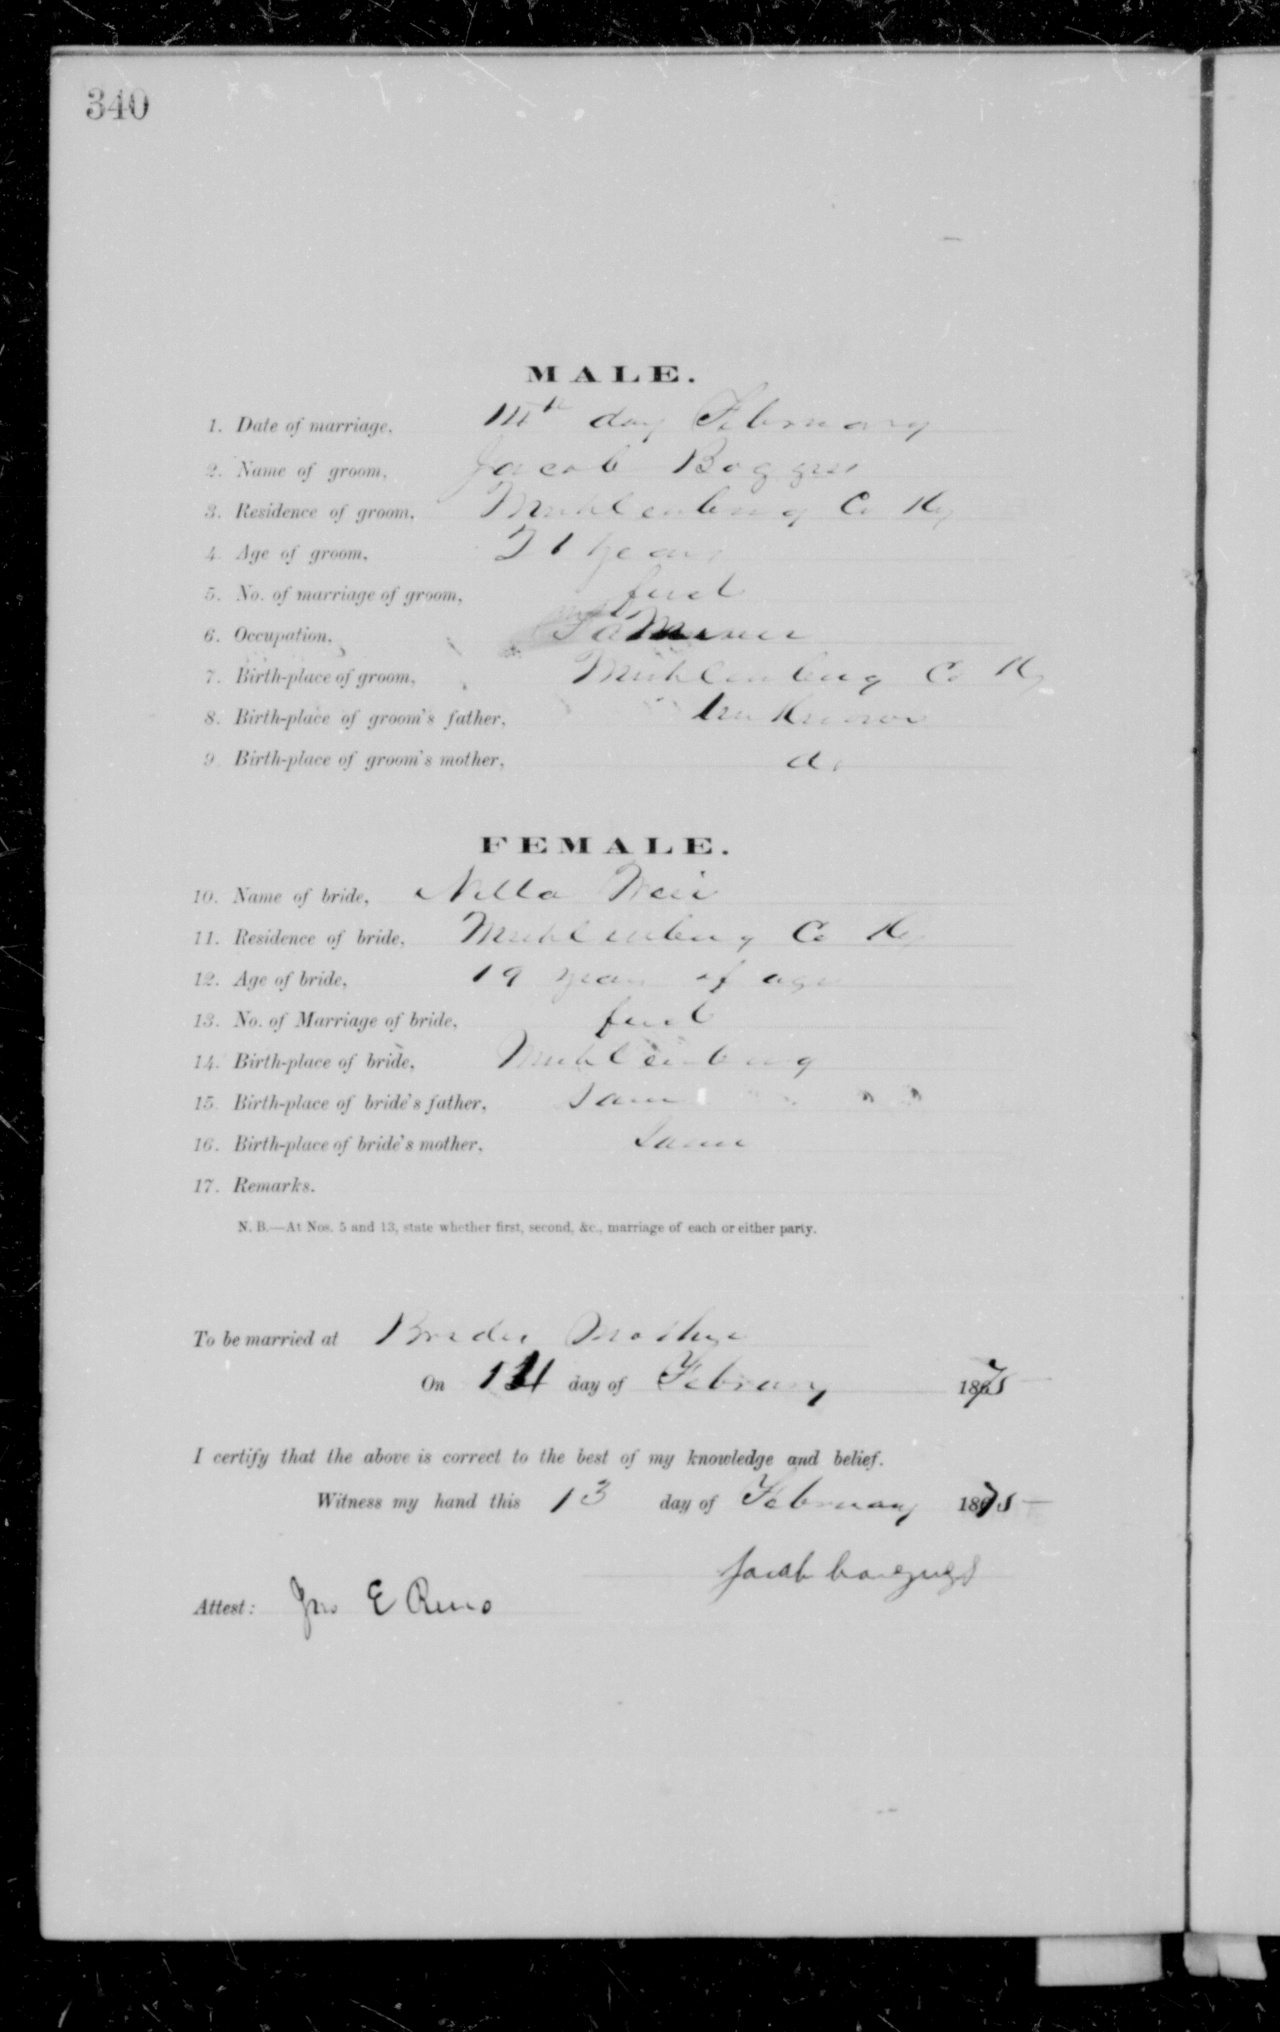 340
MALE.
1. Date of marriage, 14th day February
2. Name of groom, Jacob Boggess
3. Residence of groom, Muhlenberg Co Ky
4. Age of groom, 21 years
5. No. of marriage of groom, first
6. Occupation,
7. Birth-place of groom, Muhlenberg Co Ky
8. Birth-place of groom's father, Unknown
9. Birth-place of groom's mother, do
FEMALE.
10. Name of bride, Weir
11. Residence of bride, Muhlenberg Co Ky
12. Age of bride, 19 years of age
13. No. of Marriage of bride, first
14. Birth-place of bride, Muhlenberg
15. Birth-place of bride's father, Same
16. Birth-place of bride's mother, Same
17. Remarks.
N. B.—At Nos. 5 and 13, state whether first, second, &c., marriage of each or either party.
To be married at Brides Mothers
On 14 day of February 1875
I certify that the above is correct to the best of my knowledge and belief.
Witness my hand this 13 day of February 1875
Attest: Jno E Reno